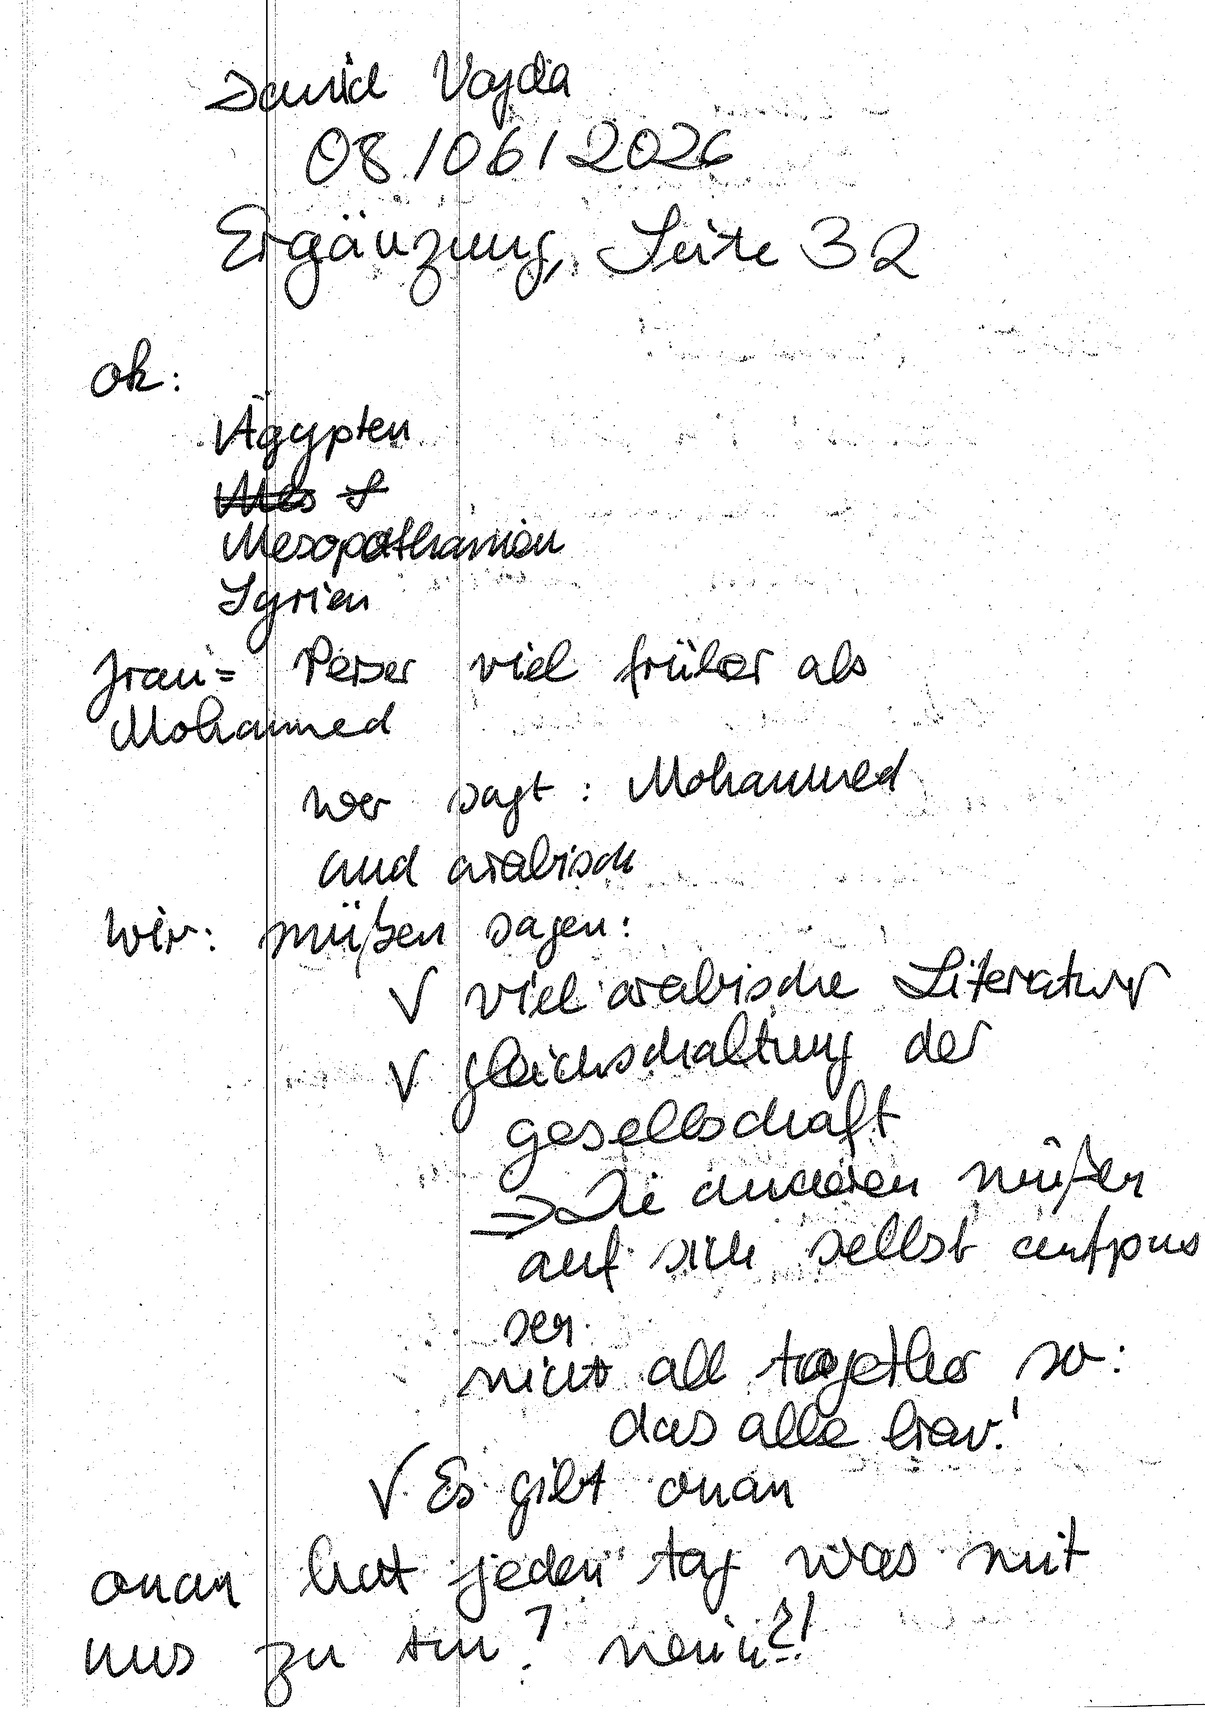 David Vajda
08/06/2026
Ergänzung, Seite 32
ok:
Ägypten
Mes S
Mesopothamien
Syrien
Iran = Perser viel früher als
Mohammed
wer sagt: Mohammed
und arabisch
Wir: müßen sagen:
√ viel arabische Literatur
√ gleichschaltung der
gesellschaft
=> Die anderen müßen
auf sich selbst aufpas
sen
nicht all together so:
das alle hier!
√ Es gibt onan
onan hat jeden tag was mit
uns zu tun? nein?!